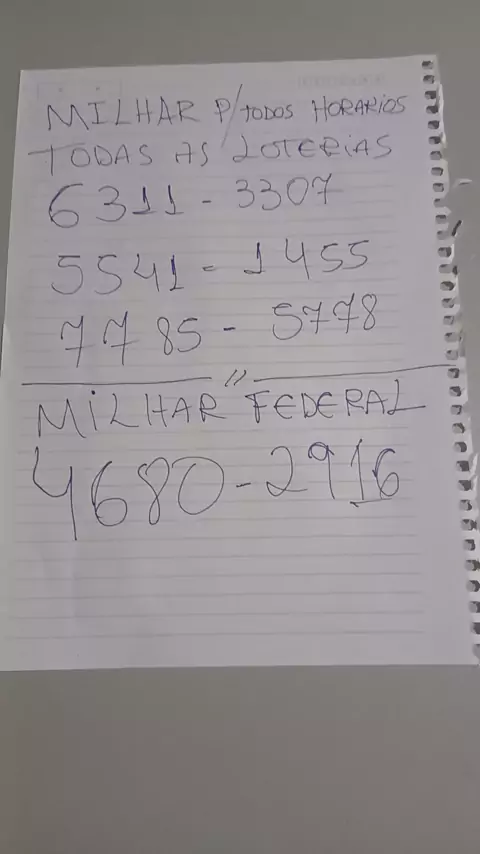 MILHAR P/TODOS HORARIOS
TODAS AS LOTERIAS
6311 - 3307
5541 - 1455
7785 - 5778
//
MILHAR FEDERAL
4680 - 2916